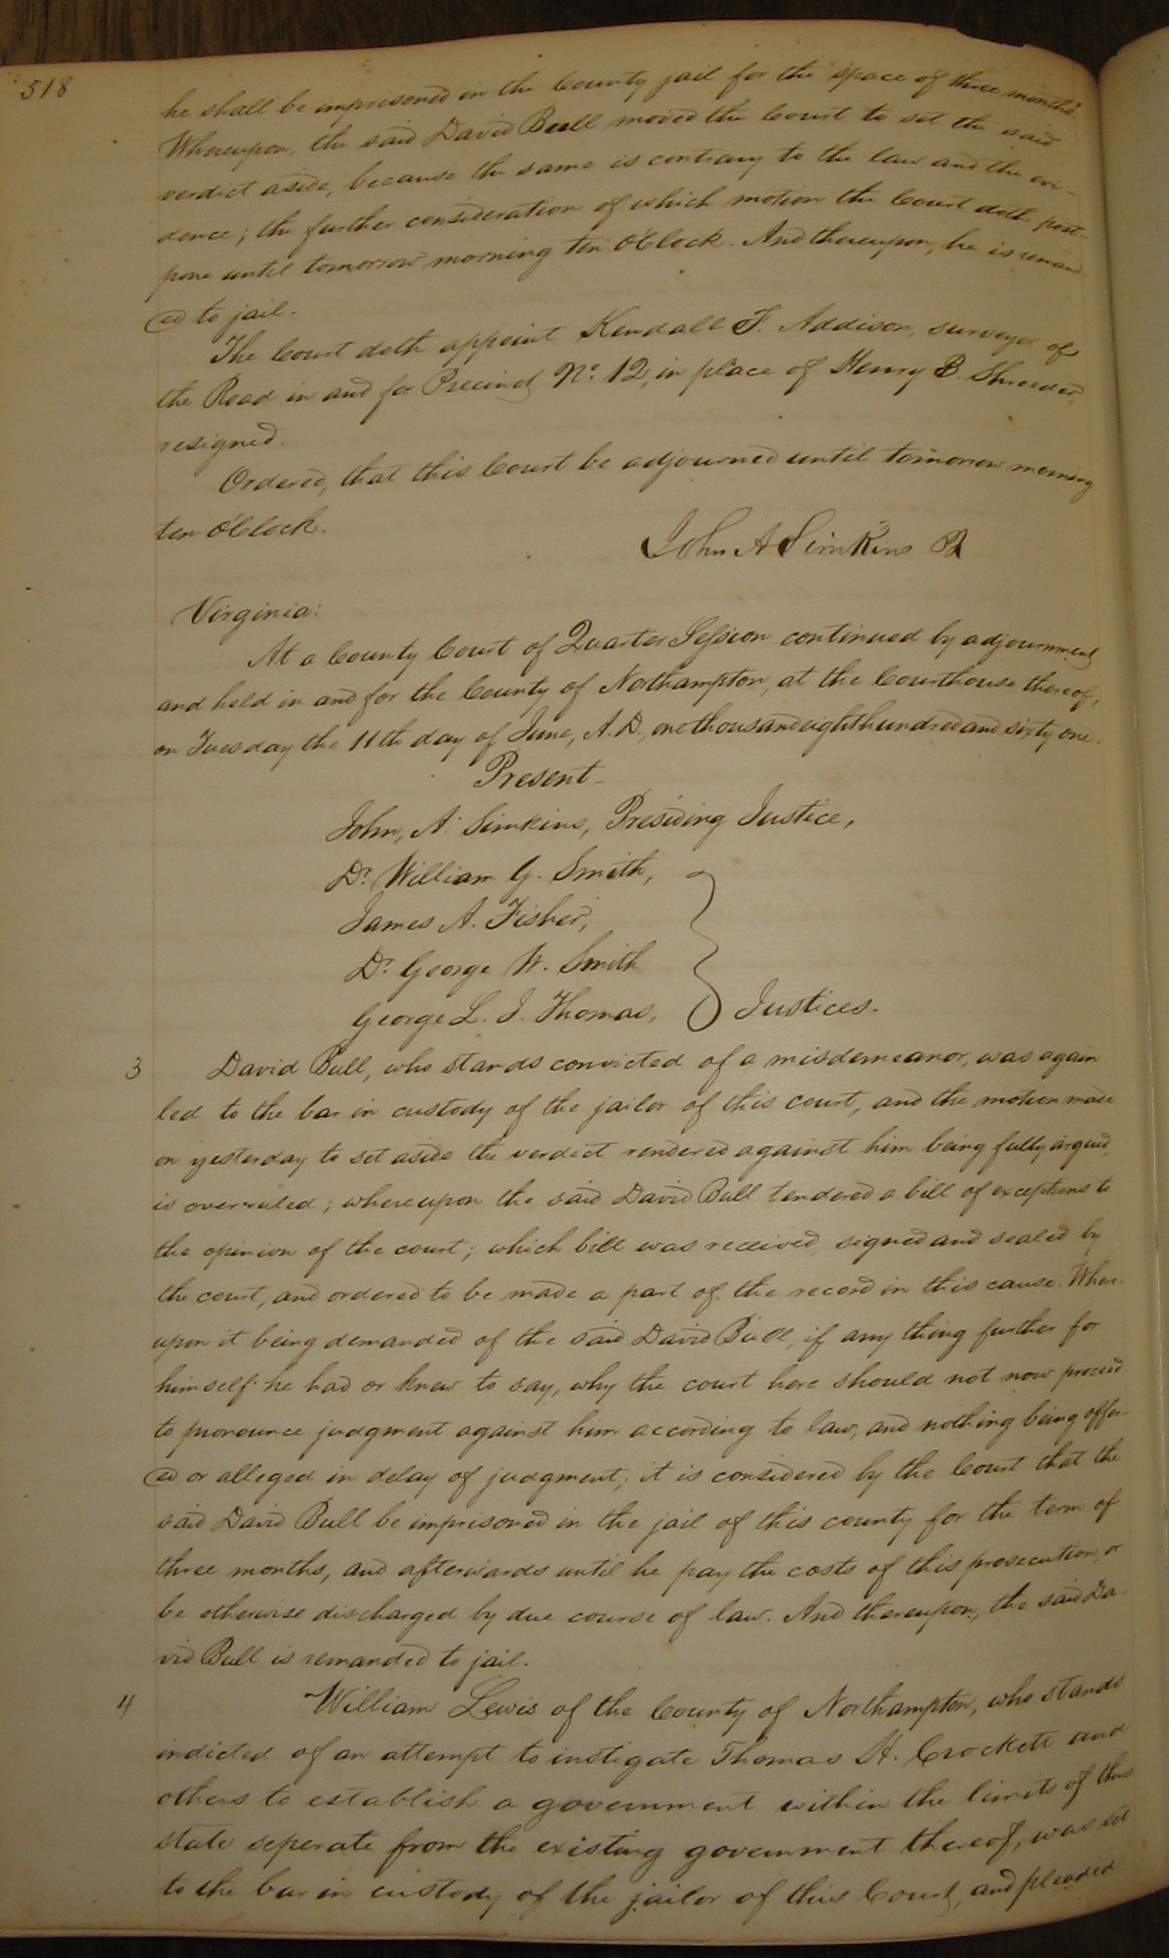 518
he shall be imprisoned in the County jail for the space of three months.
Whereupon, the said David Bull moved the Court to set the said
verdict aside, because the same is contrary to the law and the evi-
dence; the further consideration of which motion the Court doth post-
pone until tomorrow morning ten O'Clock. And thereupon, he is remand-
ed to jail.
The Court doth appoint Kendall F. Addison, surveyor of
the Road in and for Precinct No. 12, in place of Henry B.
resigned.
Ordered, that this Court be adjourned until tomorrow morning
ten O'Clock.
John A Simkins
Virginia:
At a County Court of Quarter Session continued by adjournment
and held in and for the County of Northampton, at the Courthouse thereof,
on Tuesday the 11th day of June, A. D., one thousand eight hundred and sixty one.
Present-
John, A. Simkins, Presiding Justice,
Dr. William G. Smith,
James A. Fisher,
Dr. George W. Smith
George L. J. Thomas, Justices.
3 David Bull, who stands convicted of a misdemeanor, was again
led to the bar in custody of the jailor of this court, and the motion made
on yesterday to set aside the verdict rendered against him being fully argued,
is overruled; whereupon the said David Bull tendered a bill of exceptions to
the opinion of the court; which bill was received, signed and sealed by
the court, and ordered to be made a part of the record in this cause. Where-
upon it being demanded of the said David Bull, if any thing further for
himself he had or knew to say, why the court here should not now proceed
to pronounce judgment against him according to law, and nothing being offer-
ed or alleged in delay of judgment; it is considered by the Court that the
said David Bull be imprisoned in the jail of this county for the term of
three months, and afterwards until he pay the costs of this prosecution, or
be otherwise discharged by due course of law. And thereupon, the said Da-
vid Bull is remanded to jail.
4 William Lewis of the County of Northampton, who stands
indicted of an attempt to instigate Thomas H. Crockett and
others to establish a government within the limits of this
state seperate from the existing government thereof, was set
to the bar in custody of the jailor of this Court, and pleaded